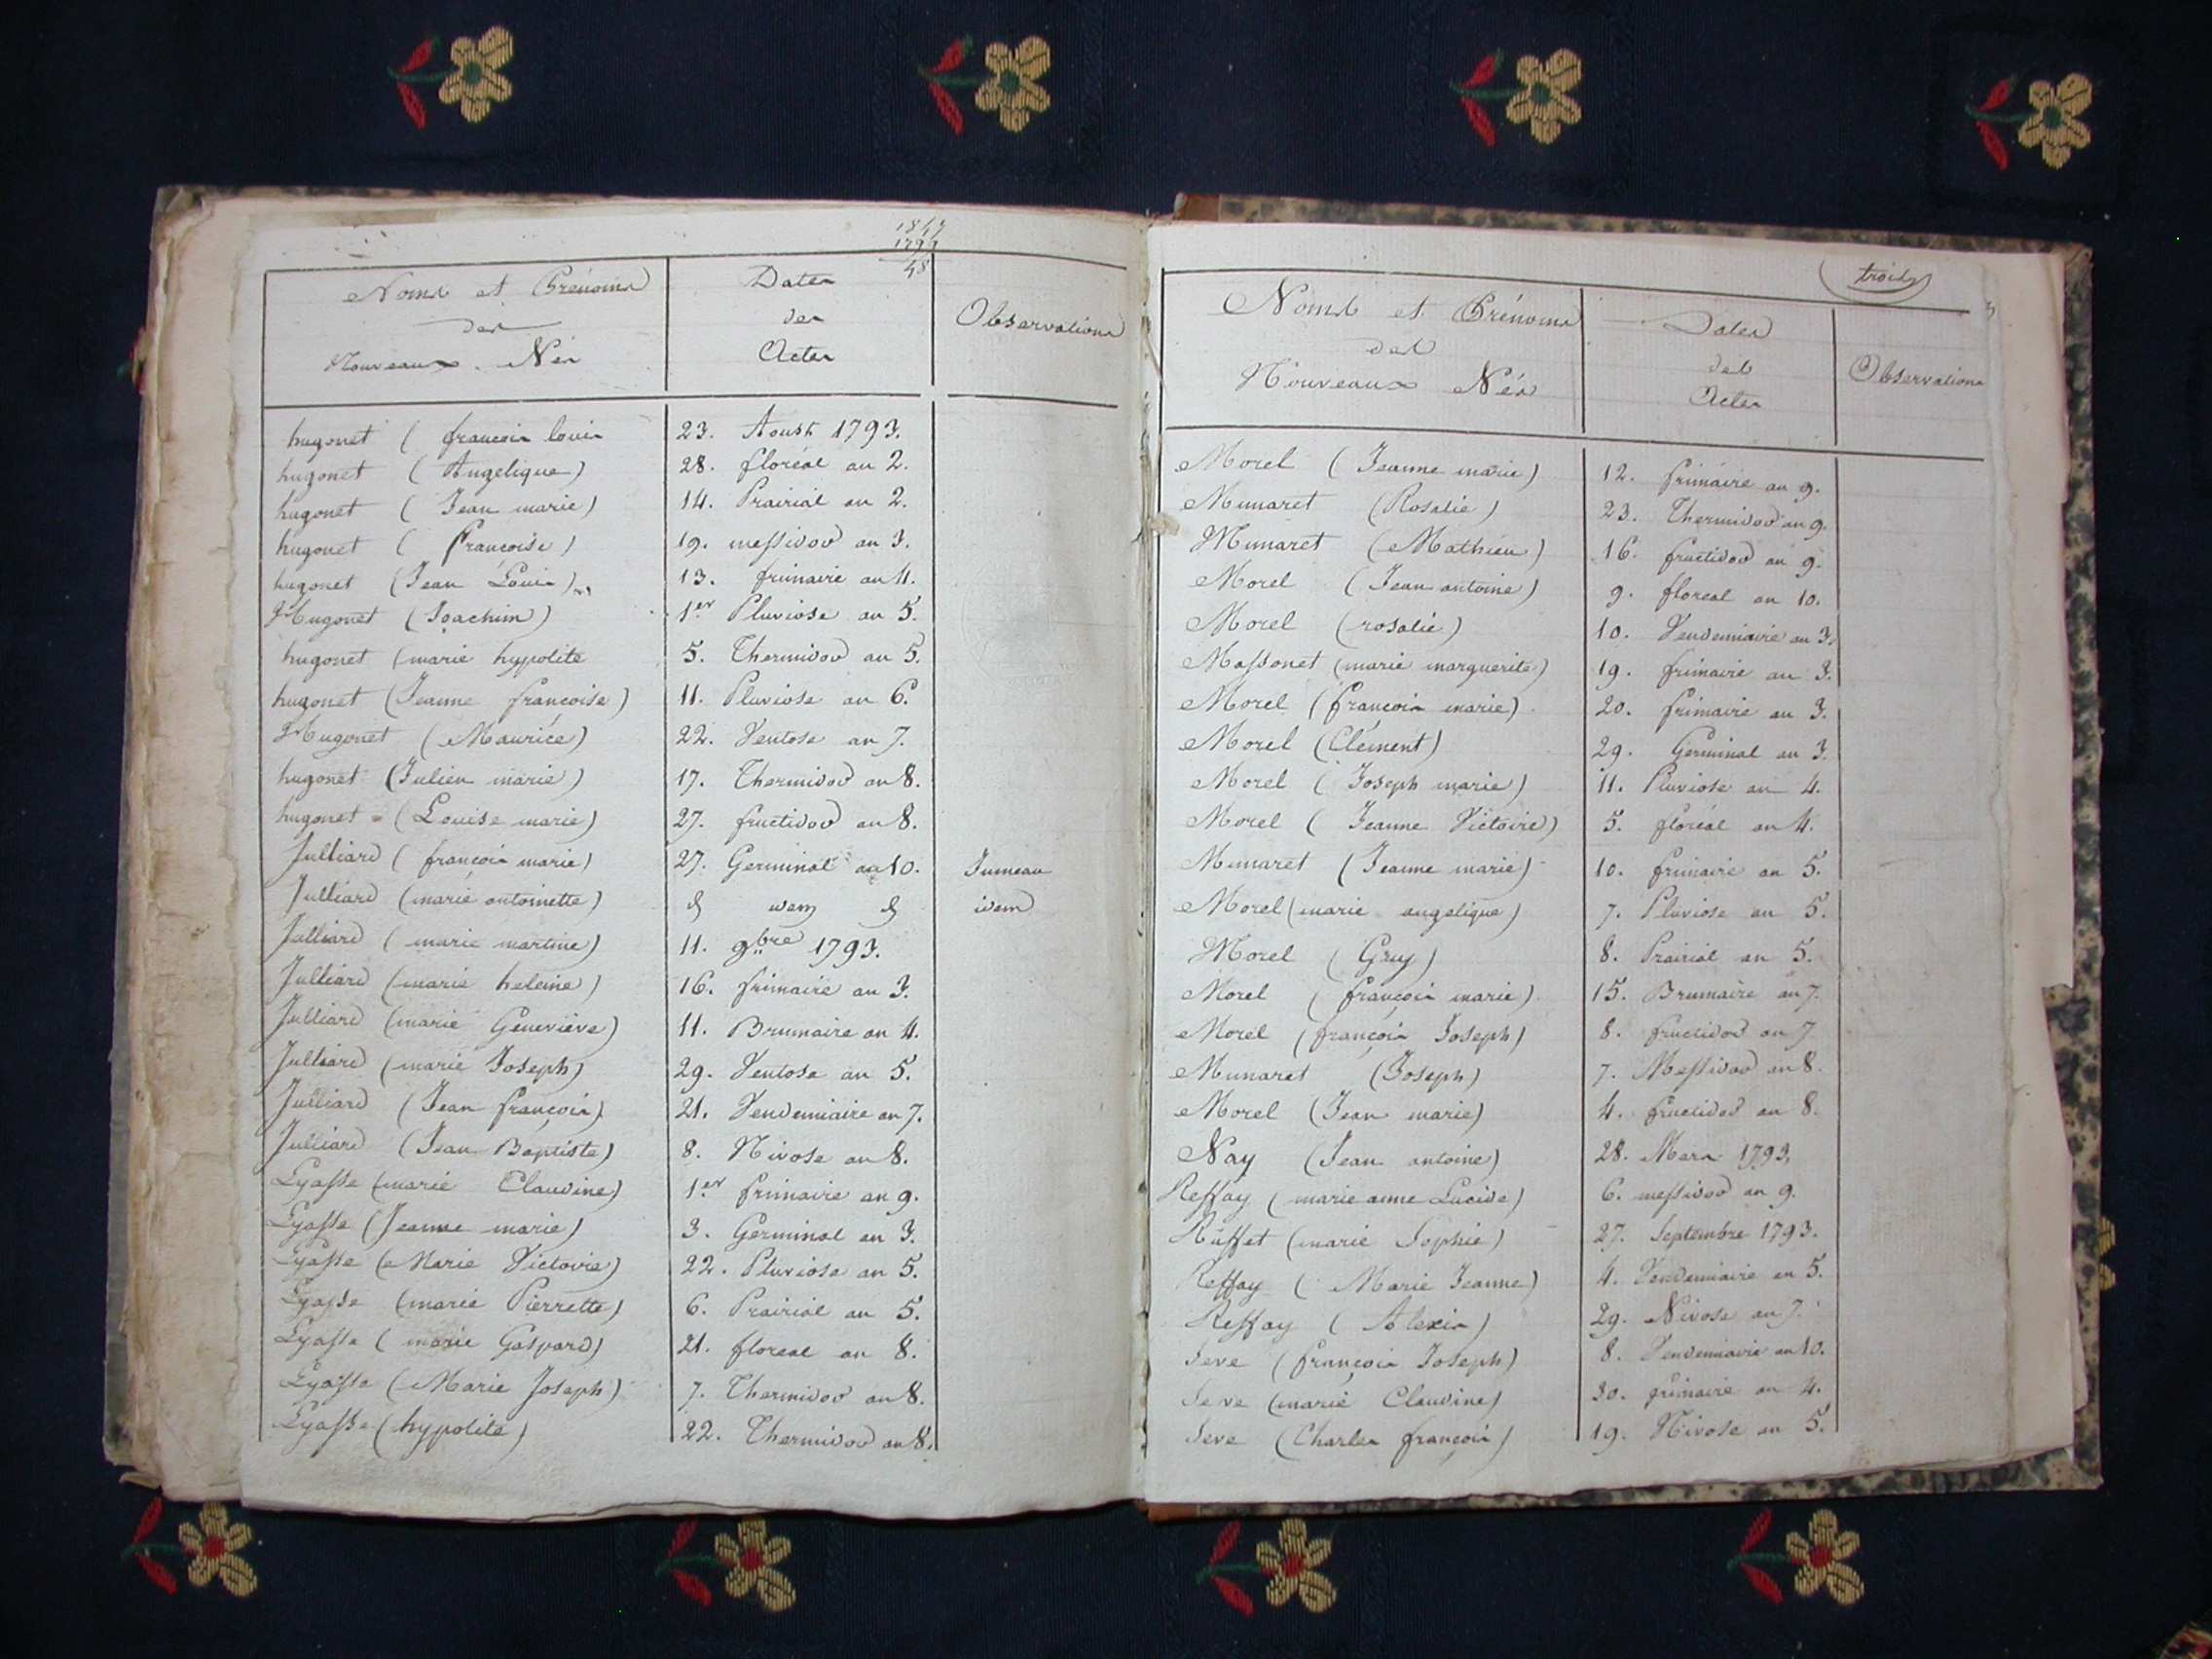 1847
1799
48
Noms et Prénoms
des
Nouveaux Nés
Dates
des
Actes
Observations
hugonet ( françois louis 23. Aoust 1793.
hugonet ( Angelique ) 28. floréal an 2.
hugonet ( Jean marie ) 14. Prairial an 2.
hugonet ( Françoise ) 19. messidor an 3.
hugonet (Jean Louis ) 13. frimaire an 4.
Hugonet (Joachim ) 1er Pluviose an 5.
hugonet (marie hypolite 5. Thermidor an 5.
hugonet (Jeanne françoise ) 11. Pluviose an 6.
Hugonet ( Maurice ) 22. Ventose an 7.
hugonet (Julien marie ) 17. Thermidor an 8.
hugonet = ( Louise marie ) 27. fructidor an 8.
Julliard ( françois marie ) 27. Germinal an 10. Jumeau
Julliard (marie antoinette ) idem idem
Julliard ( marie martine ) 11. 9bre 1793.
Julliard (marie heleine ) 16. frimaire an 3.
Julliard (marie Geneviève ) 11. Brumaire an 4.
Julliard (marie Joseph ) 29. Ventose an 5.
Julliard (Jean françois ) 21. Vendemiaire an 7.
Julliard (Jean Baptiste ) 8. Nivose an 8.
Lyasse (marie Claudine ) 1er frimaire an 9.
Lyasse (Jeanne marie ) 3. Germinal an 3.
Lyasse (Marie Victoire ) 22. Pluviose an 5.
Lyasse (marie Pierrette ) 6. Prairial an 5.
Lyasse ( marie Gaspard ) 21. floreal an 8.
Lyasse (Marie Joseph ) 7. Thermidor an 8.
Lyasse (hypolite ) 22. Thermidor an 8.
trois
3
Noms et Prénoms
des
Nouveaux Nés
Dates
des
Actes
Observations
Morel (Jeanne marie ) 12. frimaire an 9.
Munaret (Rosalie ) 23. Thermidor an 9.
Munaret (Mathieu ) 16. fructidor an 9.
Morel (Jean antoine ) 9. floreal an 10.
Morel (rosalie ) 10. Vendemiaire an 3.
Massonet (marie marguerite ) 19. frimaire an 3.
Morel (françois marie ) 20. frimaire an 3.
Morel (Clément ) 29. Germinal an 3.
Morel ( Joseph marie ) 11. Pluviose an 4.
Morel ( Jeanne Victoire ) 5. floréal an 4.
Munaret (Jeanne marie ) 10. frimaire an 5.
Morel (marie angelique ) 7. Pluviose an 5.
Morel ( Guy ) 8. Prairial an 5.
Morel ( françois marie ) 15. Brumaire an 7.
Morel (françois Joseph ) 8. fructidor an 7
Munaret (Joseph ) 7. Messidor an 8.
Morel (Jean marie ) 4. fructidor an 8.
Nay (Jean antoine ) 28. Mars 1793.
Reffay ( marie anne Lucide ) 6. messidor an 9.
Ruffet (marie Sophie ) 27. Septembre 1793.
Reffay ( Marie Jeanne ) 4. Vendemiaire an 5.
Reffay ( Alexis ) 29. Nivose an 7.
Seve (françois Joseph ) 8. Vendemiaire an 10.
Seve (marie Claudine ) 30. frimaire an 4.
Seve (Charles françois ) 19. Nivose an 5.